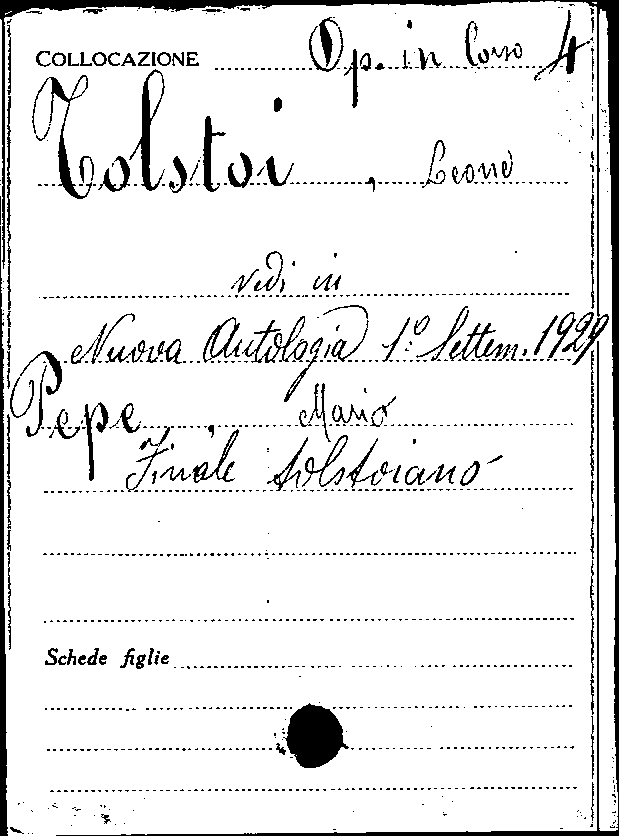 COLLOCAZIONE Op. in Corso 4
Tolstoi, Leone
vedi in
Nuova Antologia 1º Settem. 1929
Pepe, Mario
Finale tolstoiano
Schede figlie